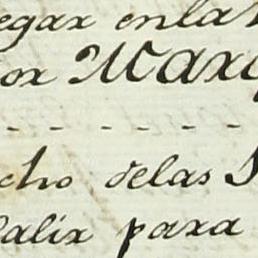 egar enla
or Marq
cho delas
alir para